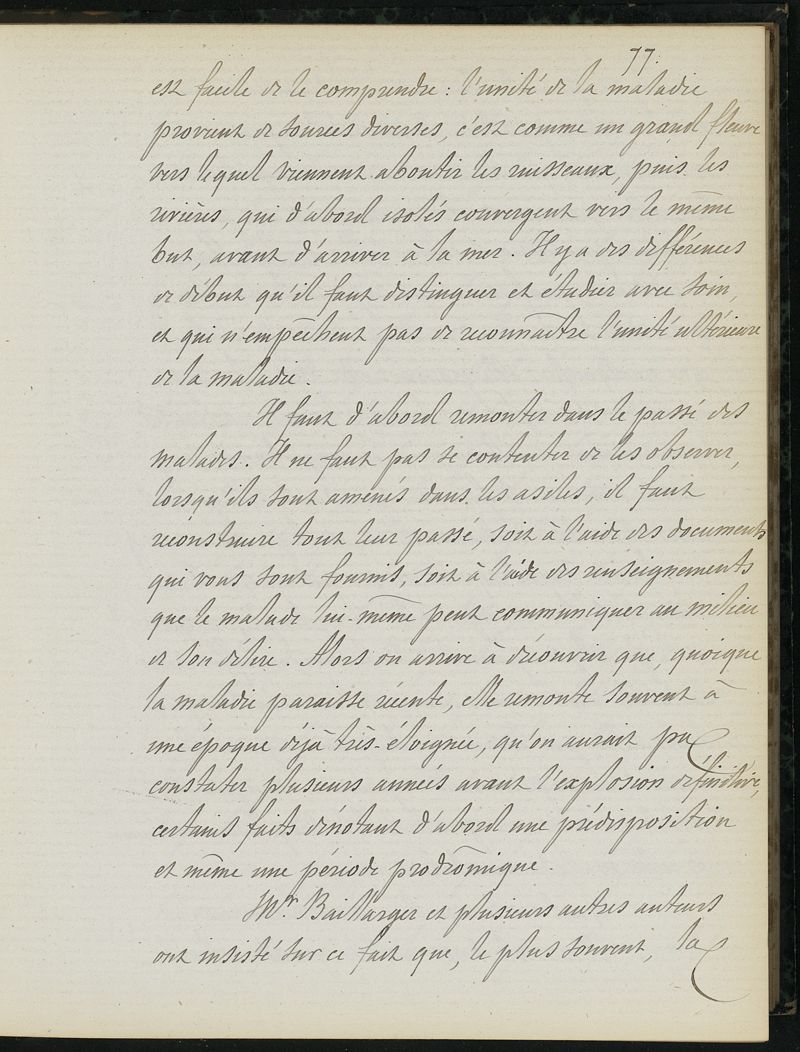 77.
est facile de le comprendre : l'unité de la maladie
provient de sources diverses, c'est comme un grand fleuve
vers lequel viennent aboutir les ruisseaux, puis les
rivières, qui d'abord isolés convergent vers le même
but, avant d'arriver à la mer. Il y a des différences
de début qu'il faut distinguer et étudier avec soin,
et qui n'empêchent pas de reconnaître l'unité ultérieure
de la maladie.
Il faut d'abord remonter dans le passé des
malades. Il ne faut pas se contenter de les observer,
lorsqu'ils sont amenés dans les asiles, il faut
reconstruire tout leur passé, soit à l'aide des documents
qui vous sont fournis, soit à l'aide des renseignements
que le malade lui-même peut communiquer au milieu
de son délire. Alors on arrive à découvrir que, quoique
la maladie paraisse récente, elle remonte souvent à
une époque déjà très-éloignée, qu'on aurait pu
constater plusieurs années avant l'explosion définitive,
certains faits dénotant d'abord une prédisposition
et même une période prodrômique.
Mr. Baillarger et plusieurs autres auteurs
ont insisté sur ce fait que, le plus souvent, la